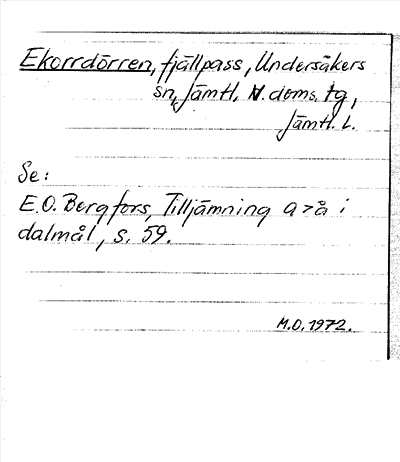 Ekorrdörren, fjällpass, Undersåkers
sn, Jämtl. N. doms. tg,
Jämtl. L.
Se:
E.O. Bergfors, Tilljämning a>å i
dalmål, s. 59.
M.O. 1972.